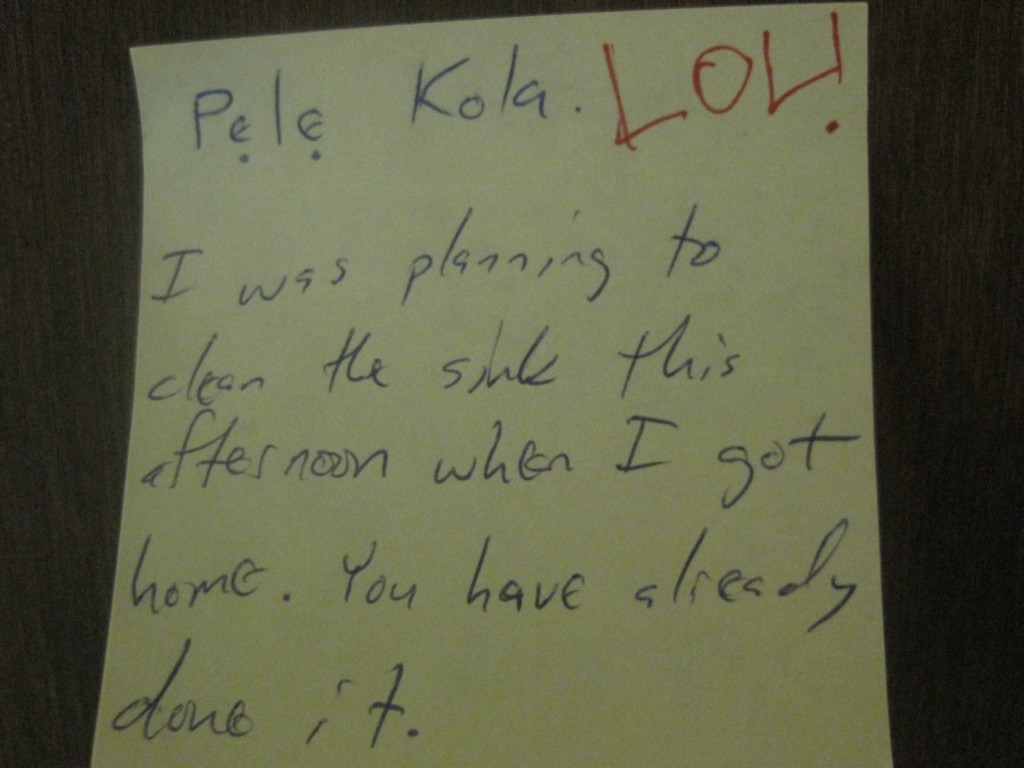 Pẹlẹ Kola. LOL!
I was planning to
clean the sink this
afternoon when I got
home. You have already
done it.